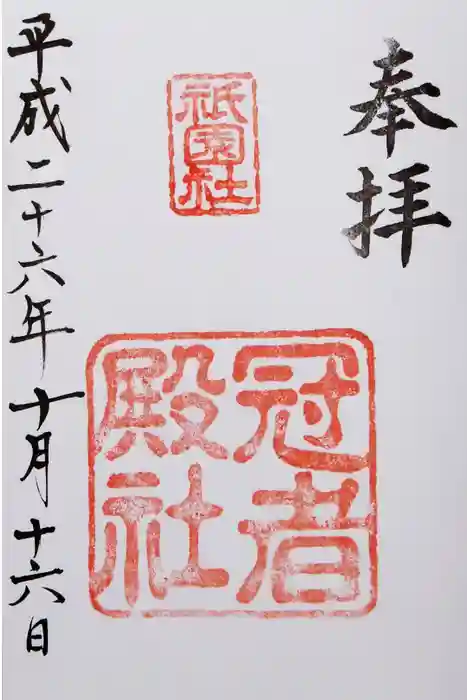 奉拝
祇園社
冠者
殿社
平成二十六年十月十六日